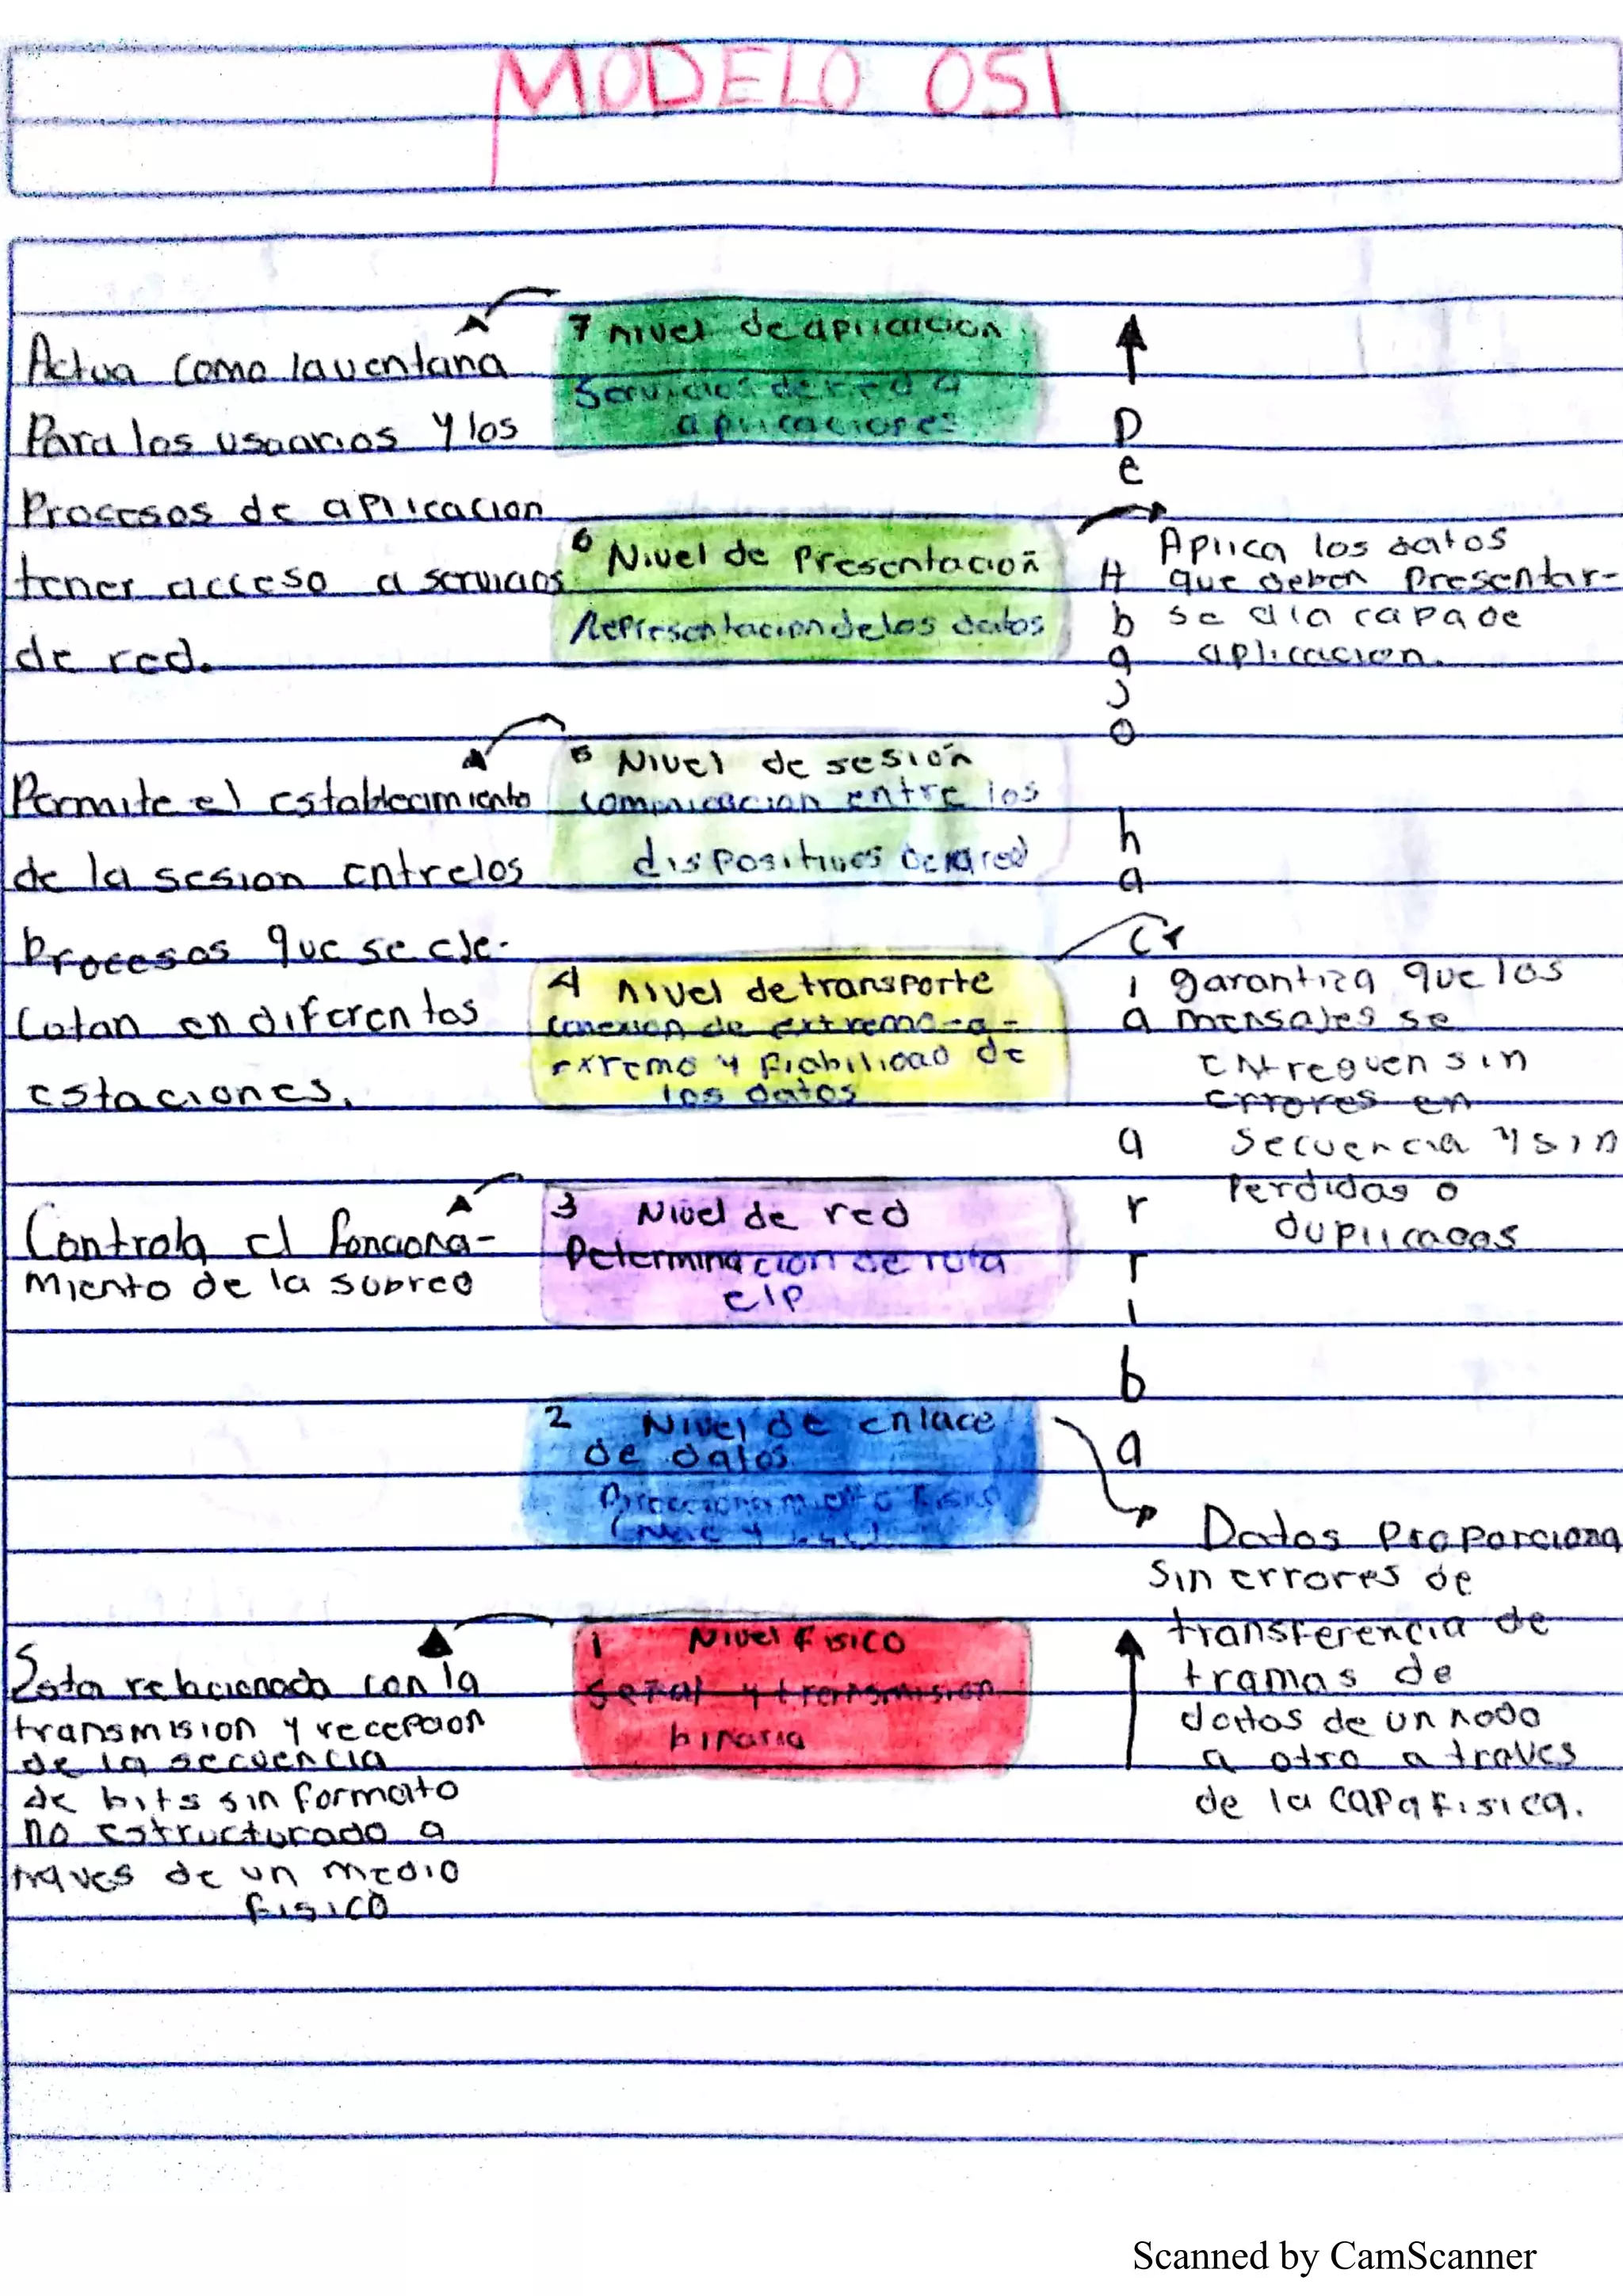 MODELO OSI
7 nivel de aplicacion
Servicios de red a
aplicaciones
Actua como la ventana
Para los usuarios y los
Procesos de aplicacion
tener acceso a servicios
de red.
6 Nivel de Presentación
Representacion de los datos
Aplica los datos
que deben Presentar-
se a la capa de
aplicacion.
5 Nivel de sesión
comunicacion entre los
dispositivos de la red
Permite el establecimiento
de la sesion entre los
Procesos que se eje-
cutan en diferentes
estaciones.
4 nivel de transporte
conexion de extremo-a-
extremo y fiabilidad de
los datos
garantiza que los
mensajes se
entreguen sin
errores en
secuencia y sin
Perdidas o
duplicadas
3 Nivel de red
Determinacion de ruta
e IP
Controla el funciona-
miento de la subred
2 Nivel de enlace
de datos
Direccionamiento fisico
(Mac y LLC)
Datos Proporciona
Sin errores de
transferencia de
tramas de
datos de un nodo
a otro a traves
de la capa fisica.
1 Nivel Fisico
Señal y transmision
binaria
Esta relacionada con la
transmision y recepcion
de la secuencia
de bits sin formato
no estructurado a
traves de un medio
fisico
De
Abajo
hacia
arriba
Scanned by CamScanner